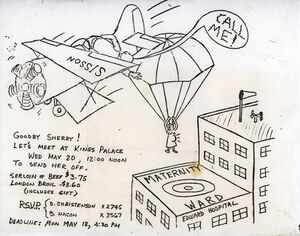 CALL ME!
SISSON
GOODBY SHERRY!
LET'S MEET AT KINGS PALACE
WED MAY 20, 12:00 NOON
TO SEND HER OFF.
SERLOIN OF BEEF $3.75
LONDON BROIL $3.60
(INCLUDES GIFT)
RSVP { D. CHRISTENSON X 2745
B. NACON X 3567
DEADLINE: MON MAY 18, 4:30 PM
MATERNITY
WARD
EDWARD HOSPITAL